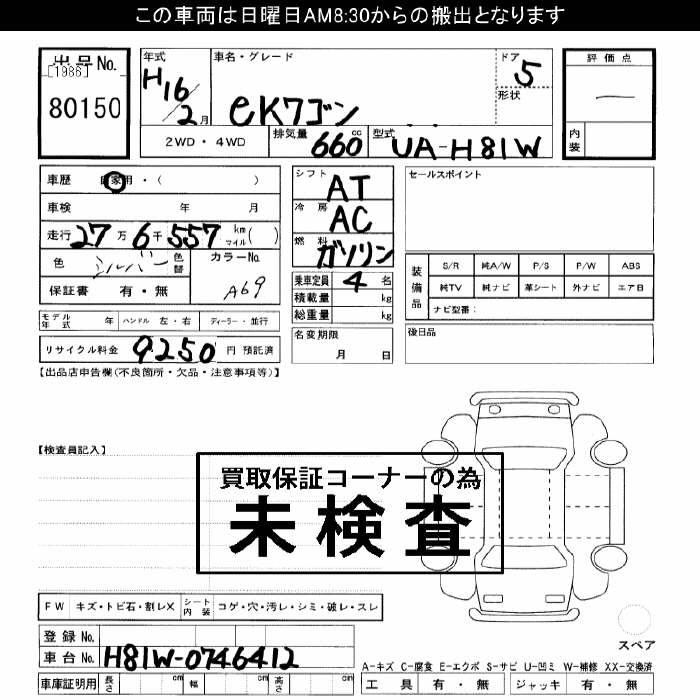 この車両は日曜日AM8:30からの搬出となります
出品No.
[1986]
80150
年式 H16/2月
車名・グレード
eKワゴン
ドア 5
形状
評価点
―
内装
2WD・4WD
排気量 660 cc
型式 UA-H81W
車歴 自家用・( )
車検 年 月
走行 27万6千557 km マイル( )
色 シルバー 色替
カラーNo. A69
保証書 有・無
モデル年式 年 ハンドル 左・右 ディーラー・並行
リサイクル料金 9250 円 預託済
シフト AT
冷房 AC
燃料 ガソリン
乗車定員 4 名
積載量 kg
総重量 kg
名変期限
月 日
セールスポイント
装備品
S/R 純A/W P/S P/W ABS
純TV 純ナビ 革シート 外ナビ エアB
ナビ型番:
後日品
【出品店申告欄(不良箇所・欠品・注意事項等)】
【検査員記入】
買取保証コーナーの為
未検査
FW キズ・トビ石・割レX シート内装 コゲ・穴・汚レ・シミ・破レ・スレ
登録No.
車台No. H81W-0746412
車庫証明用 長さ cm 幅 cm 高さ cm
スペア
A-キズ C-腐食 E-エクボ S-サビ U-凹ミ W-補修 XX-交換済
工具 有・無 ジャッキ 有・無